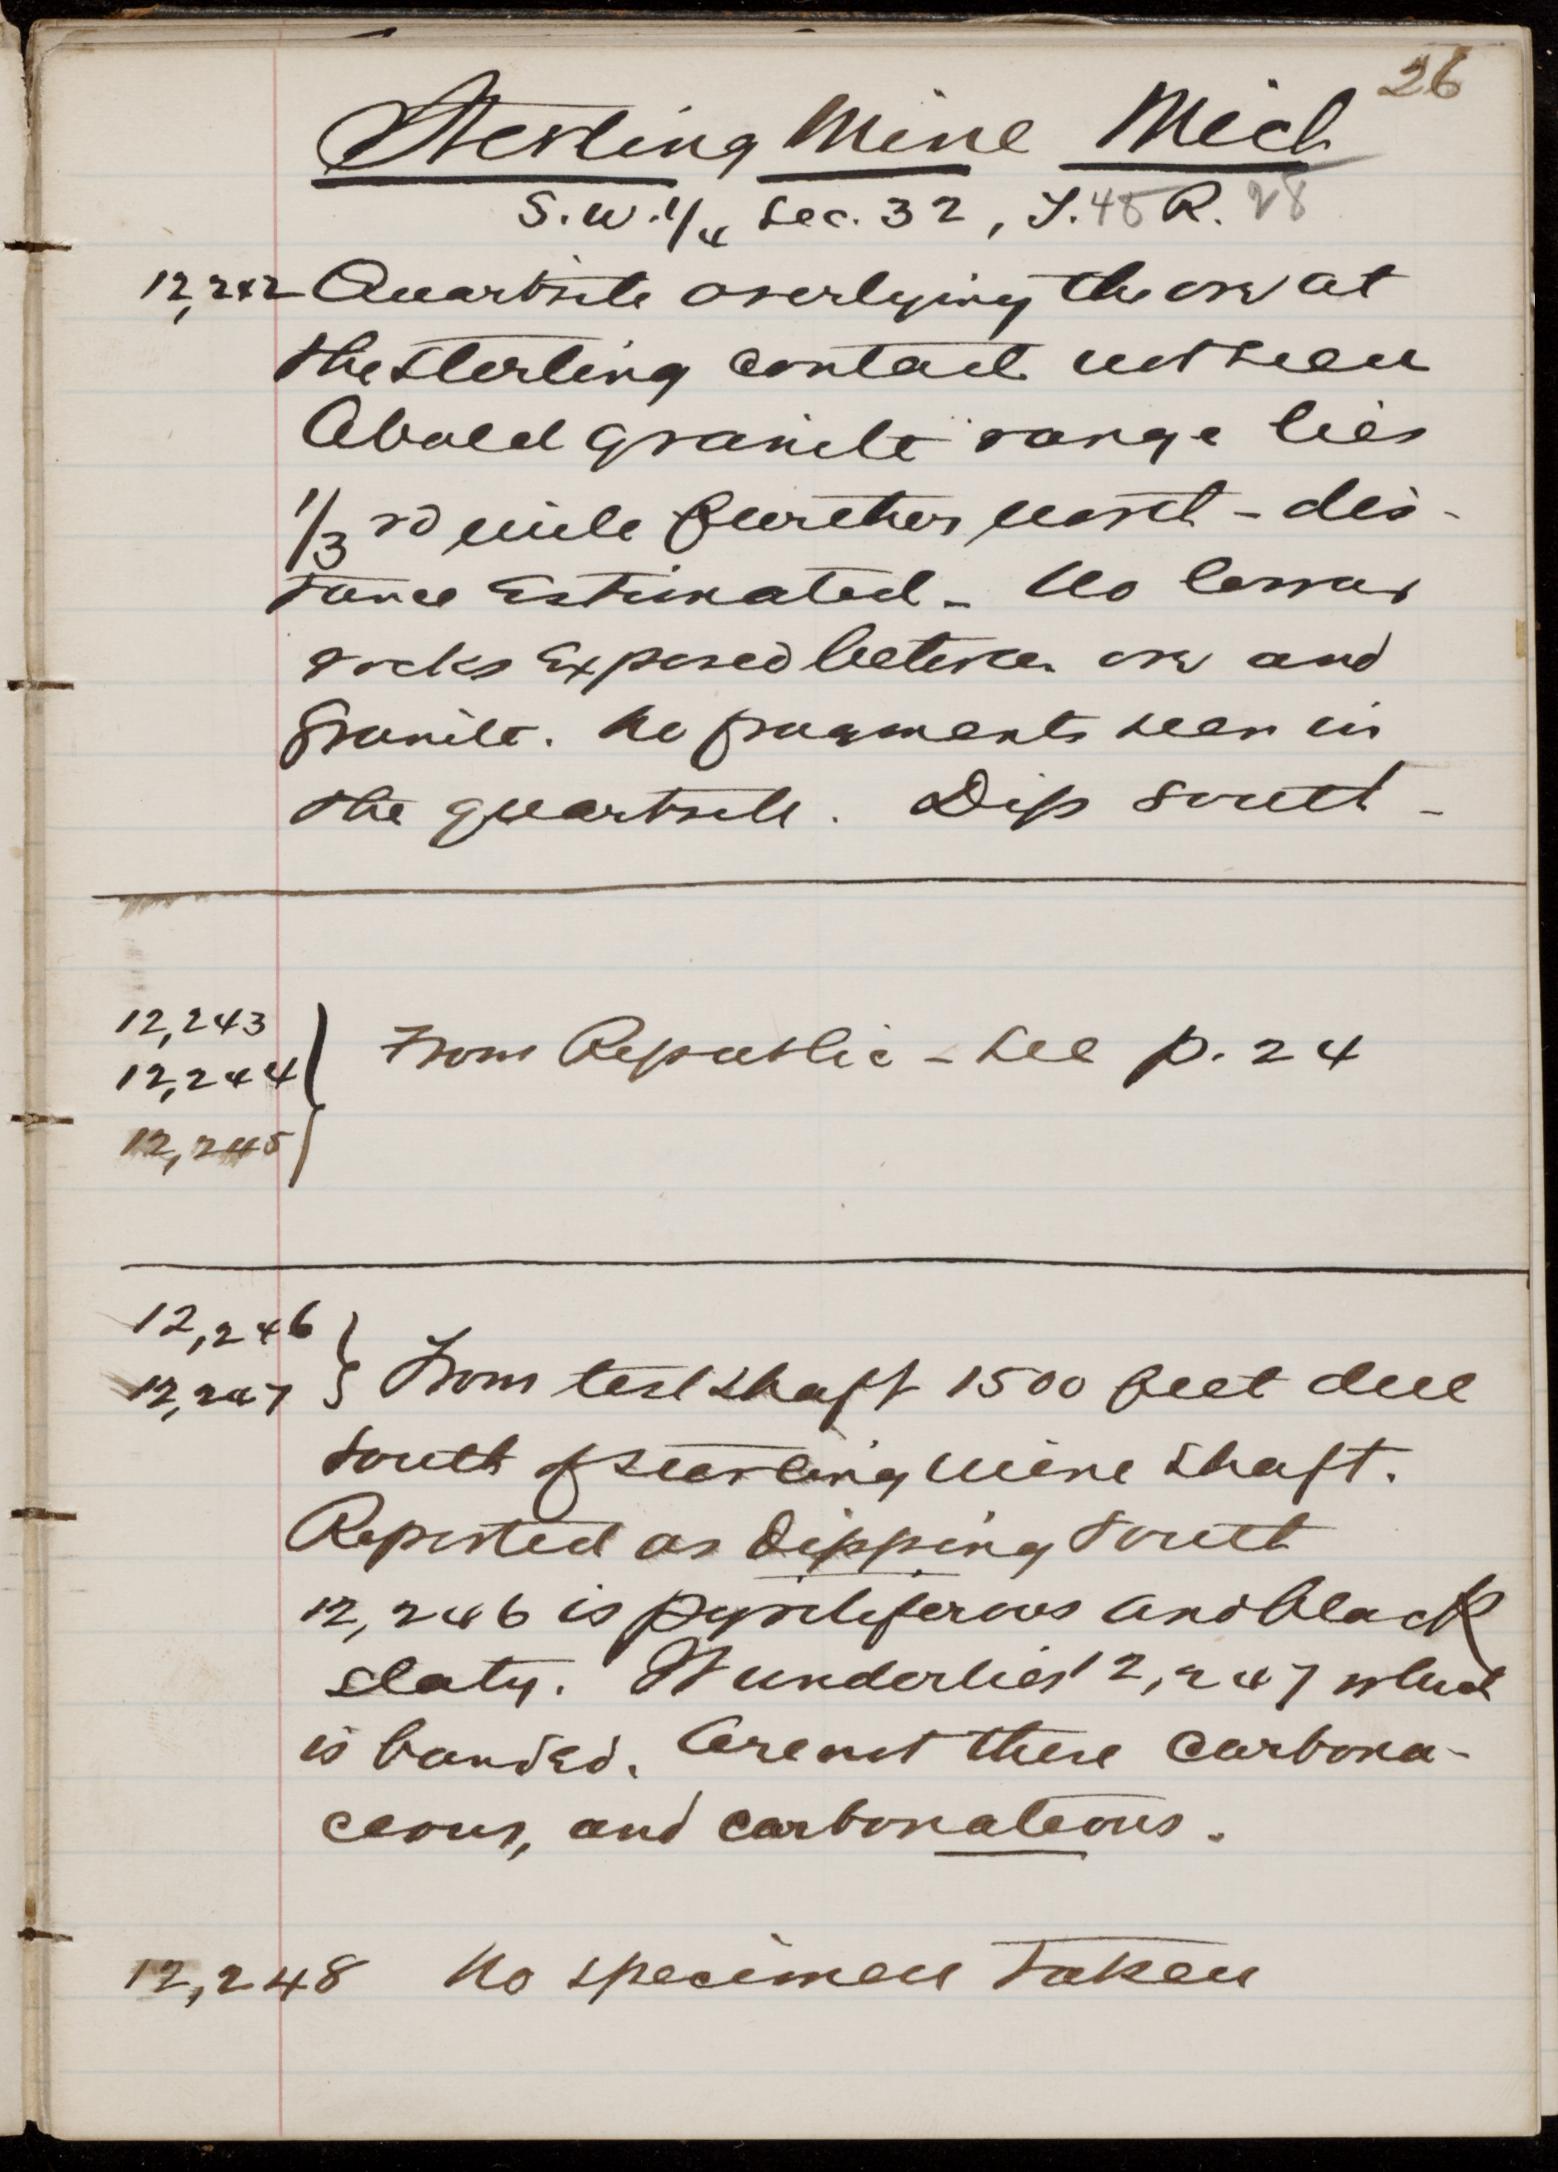 26
Sterling Mine Mich
S.W. 1/4 Sec. 32, T. 48 R. 28
12,242 Quartzite overlying the ore at
the Sterling contact not seen
A bold granite range lies
1/3 rd mile further north - dis-
tance Estimated - No lower
rocks Exposed between ore and
Granite. No fragments seen in
the quartzite. Dip South -
12,243
12,244 } From Republic - See p. 24
12,245
12,246
12,247 } From test shaft 1500 feet due
South of Sterling Mine Shaft.
Reported as dipping South
12,246 is pyritiferous and black
slaty. It underlies 12,247 which
is banded. Are not these carbona-
ceous, and carbonateous.
12,248 No specimen taken